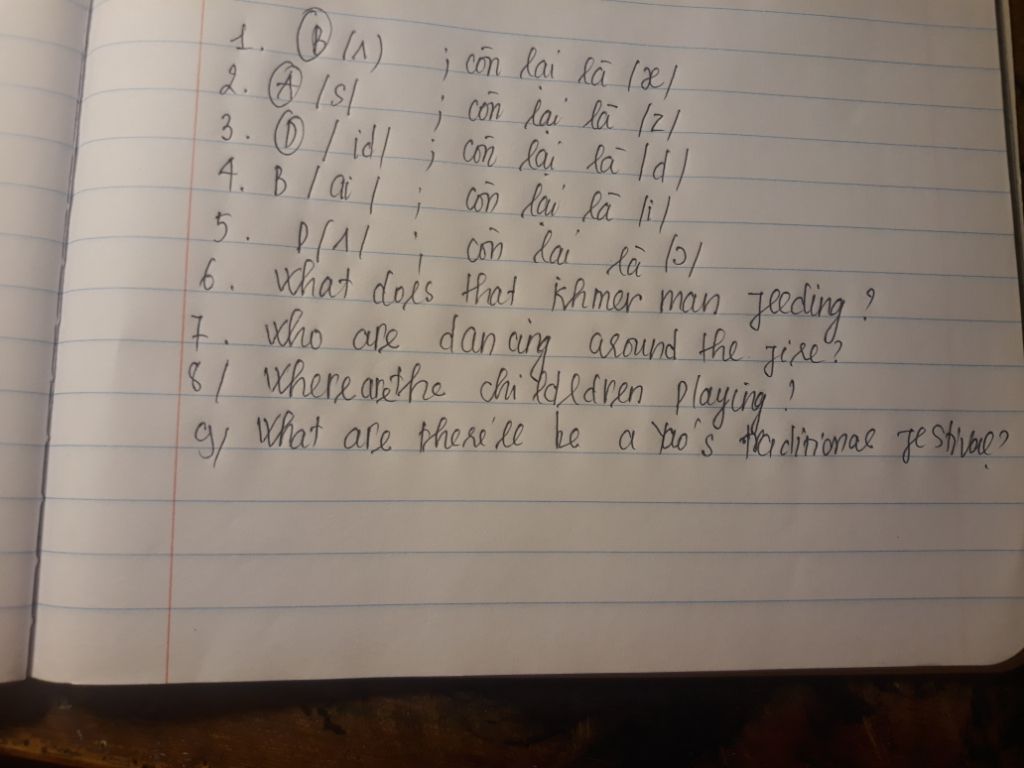 1. B (ʌ) ; còn lại là /æ/
2. A /s/ ; còn lại là /z/
3. D / id/ ; còn lại là /d/
4. B / ai / ; còn lại là /i/
5. D /ʌ/ ; còn lại là /ɔ/
6. What does that khmer man feeding ?
7. Who are dancing around the fire?
8/ Where are the childeldren playing ?
9/ What are there'll be a Yao's traditional festival?